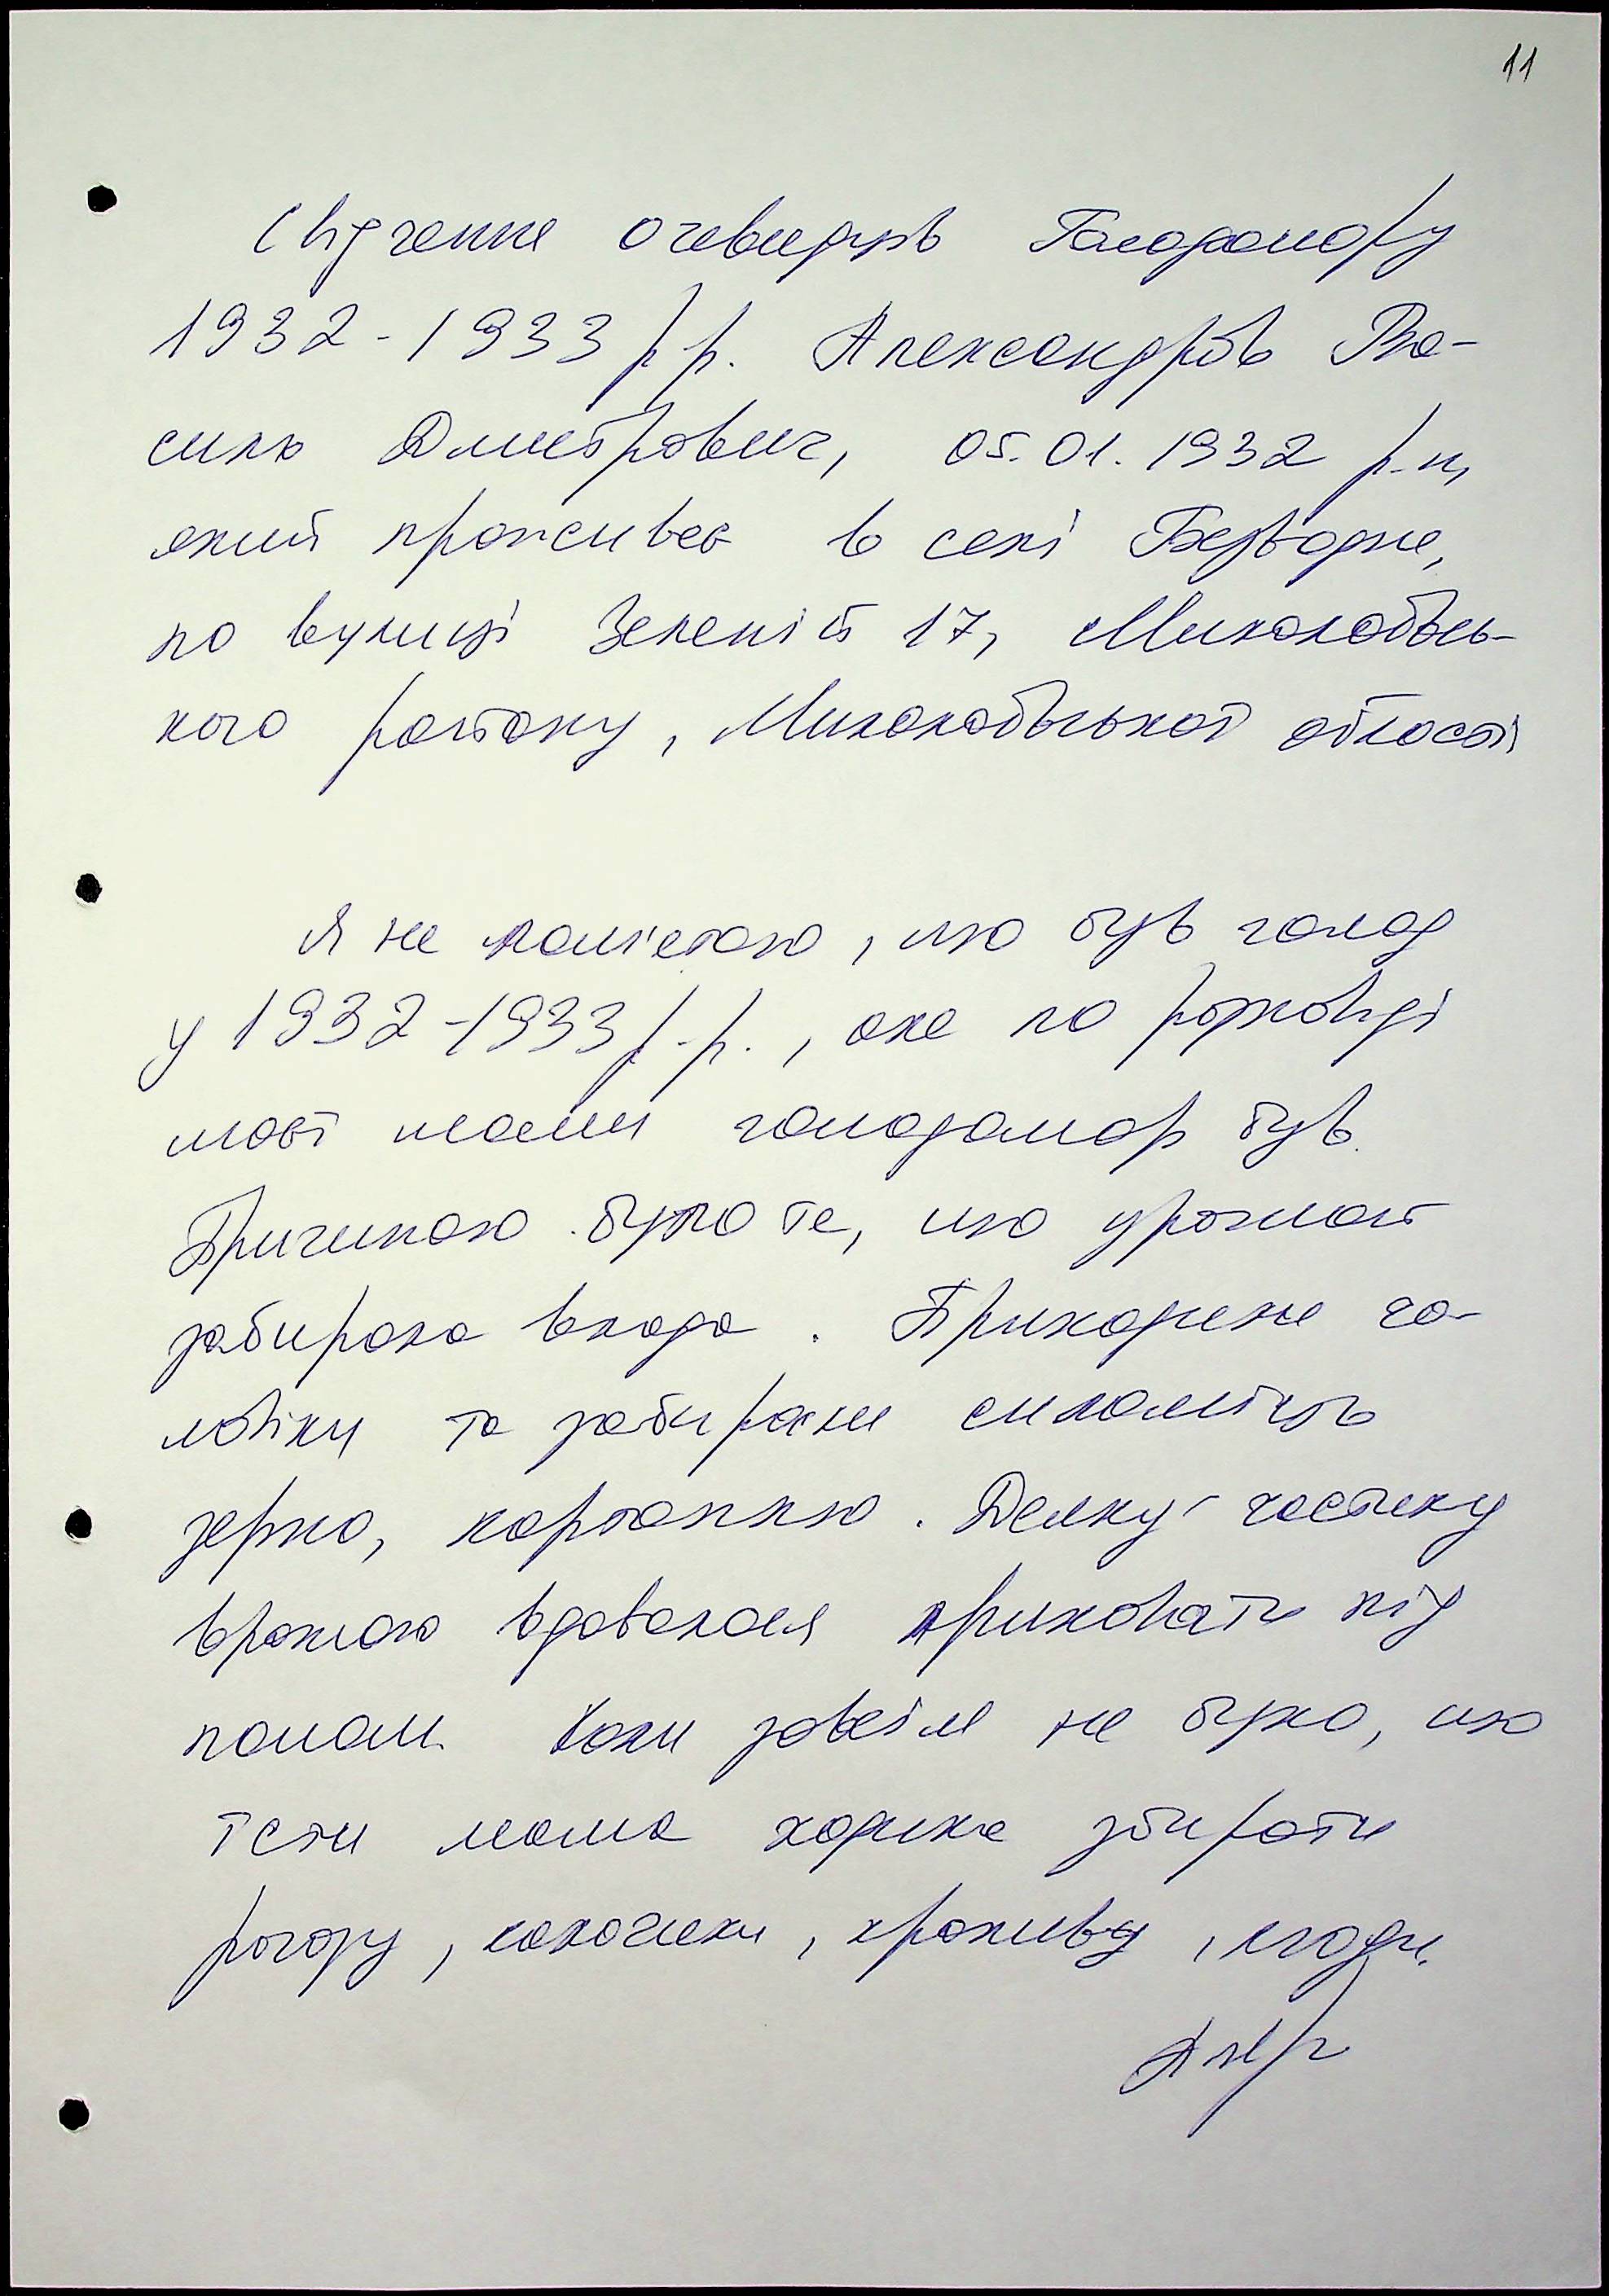 11
Свідчення очевидців Голодомору
1932-1933 р.р. Александров Ва-
силь Дмитрович, 05.01.1932 р.н,
який проживає в селі Безводне,
по вулиці Зеленій 17, Миколаївсь-
кого району, Миколаївської області
Я не пам'ятаю, що був голод
у 1932-1933 р.р., але по розповіді
моєї мами голодомор був.
Причиною було те, що урожай
забирала влада. Приходили чо-
ловіки та забирали силоміць
зерно, картоплю. Деяку частину
врожаю вдавалося приховати під
полом. Коли зовсім не було, що
їсти мама ходила збирати
рогозу, колоски, кропиву, ягоди.